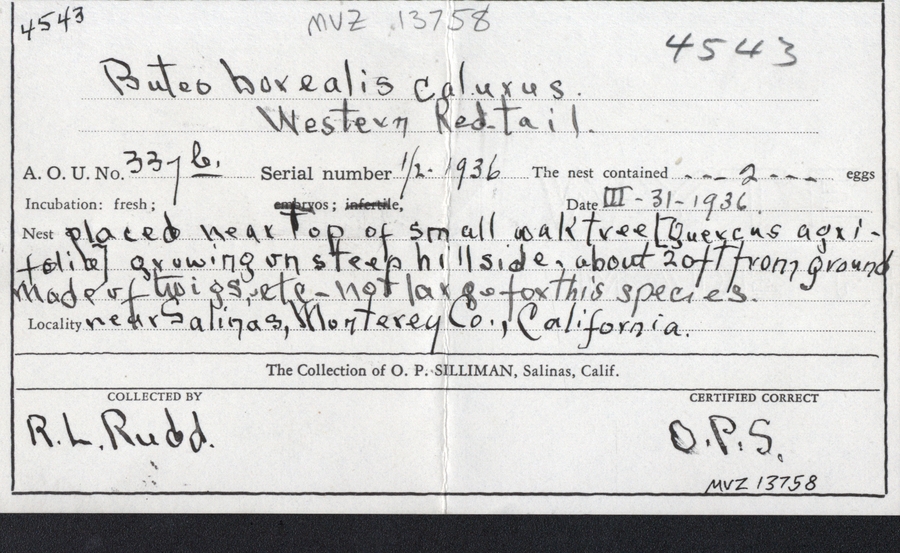 4543
MVZ 13758
4543
Buteo borealis calurus.
Western Redtail.
A. O. U. No. 337 b. Serial number 1/2. 1936 The nest contained - - - 2 - - - - eggs
Incubation: fresh; embryos; infertile, Date III - 31 - 1936.
Nest placed near Top of small oak tree [Quercus agri-
folia] growing on steep hillside, about 20 ft from ground
Made of twigs, etc - not large for this species.
Locality near Salinas, Monterey Co., California.
The Collection of O. P. SILLIMAN, Salinas, Calif.
COLLECTED BY CERTIFIED CORRECT
R. L. Rudd. O. P. S.
MVZ 13758